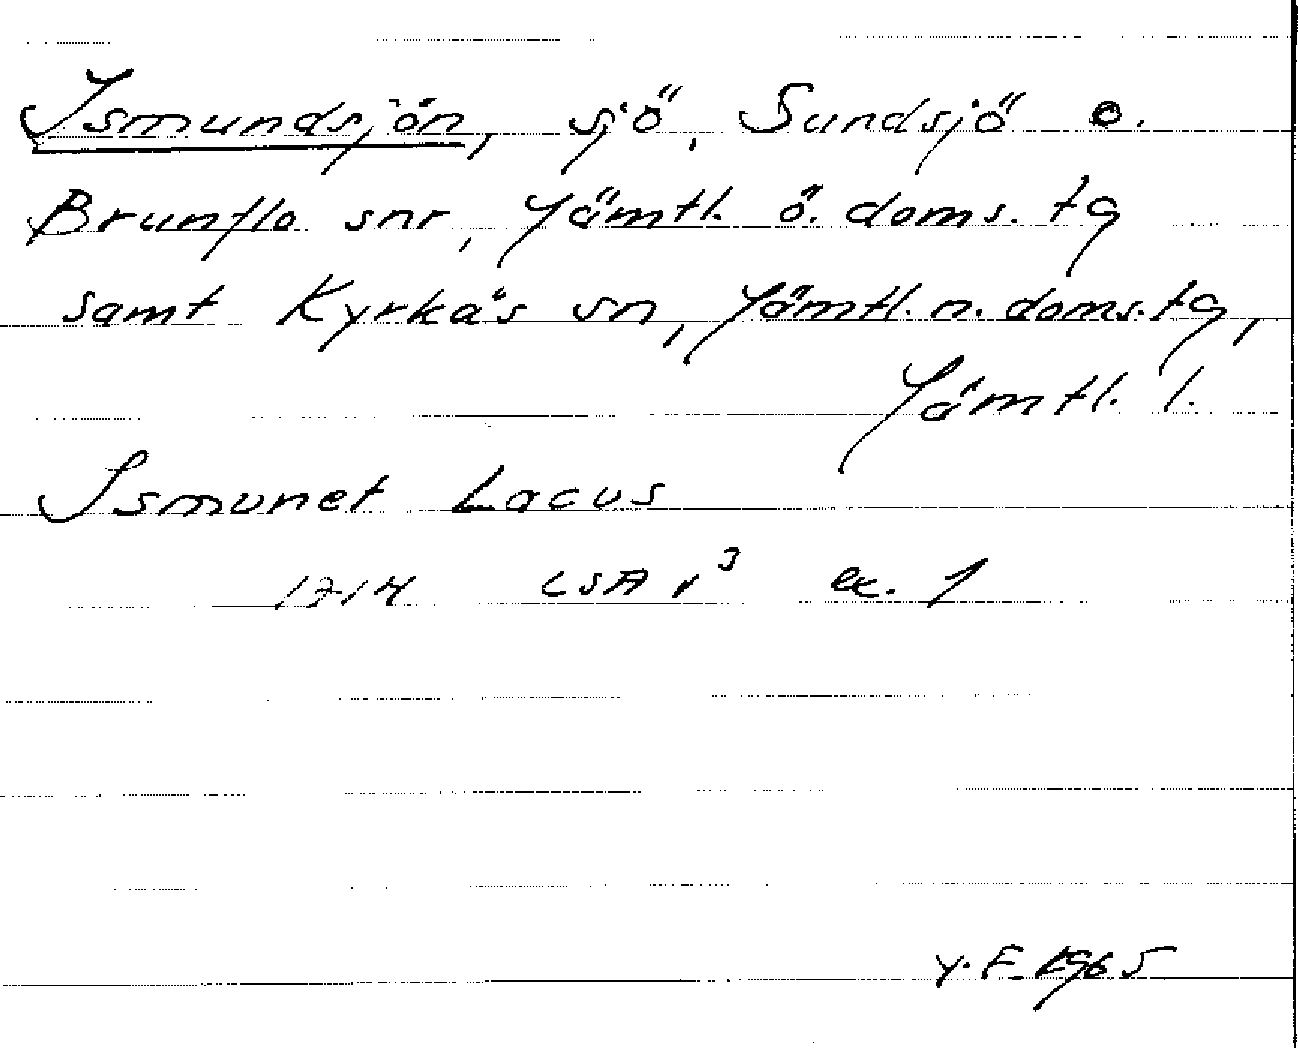 Ismundsjön, sjö, Sundsjö o.
Brunflo snr, Jämtl. ö. doms. tg
samt Kyrkås sn, Jämtl. n. doms. tg,
Jämtl. l.
Ismunet Lacus
1714 LSA r³ ex. 1
Y. F. 1965